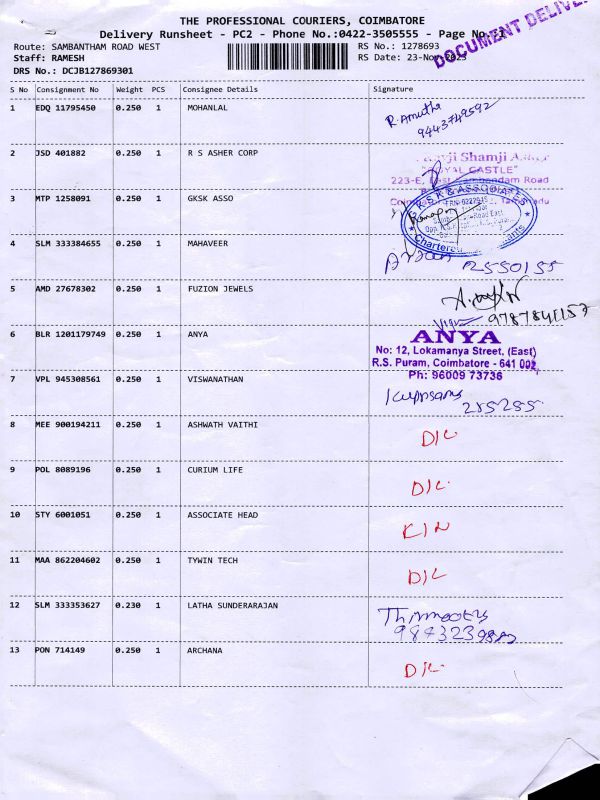 THE PROFESSIONAL COURIERS, COIMBATORE
Delivery Runsheet - PC2 - Phone No.:0422-3505555 - Page No.:1
DOCUMENT DELIVE
Route: SAMBANTHAM ROAD WEST RS No.: 1278693
Staff: RAMESH RS Date: 23-Nov-2023
DRS No.: DCJB127869301
S No Consignment No Weight PCS Consignee Details Signature
1 EDQ 11795450 0.250 1 MOHANLAL R. Amutha
9443749592
2 JSD 401882 0.250 1 R S ASHER CORP
Shamji
"ROYAL CASTLE"
223-E, East Sambandam Road
3 MTP 1258091 0.250 1 GKSK ASSO
& ASSOCIATES
Chartered
4 SLM 333384655 0.250 1 MAHAVEER
2550155
5 AMD 27678302 0.250 1 FUZION JEWELS
9787841157
6 BLR 1201179749 0.250 1 ANYA ANYA
No: 12, Lokamanya Street, (East)
R.S. Puram, Coimbatore - 641 002,
Ph: 96009 73736
7 VPL 945308561 0.250 1 VISWANATHAN
285255
8 MEE 900194211 0.250 1 ASHWATH VAITHI D/L
9 POL 8089196 0.250 1 CURIUM LIFE D/L
10 STY 6001051 0.250 1 ASSOCIATE HEAD
11 MAA 862204602 0.250 1 TYWIN TECH D/L
12 SLM 333353627 0.230 1 LATHA SUNDERARAJAN
13 PON 714149 0.250 1 ARCHANA D/L